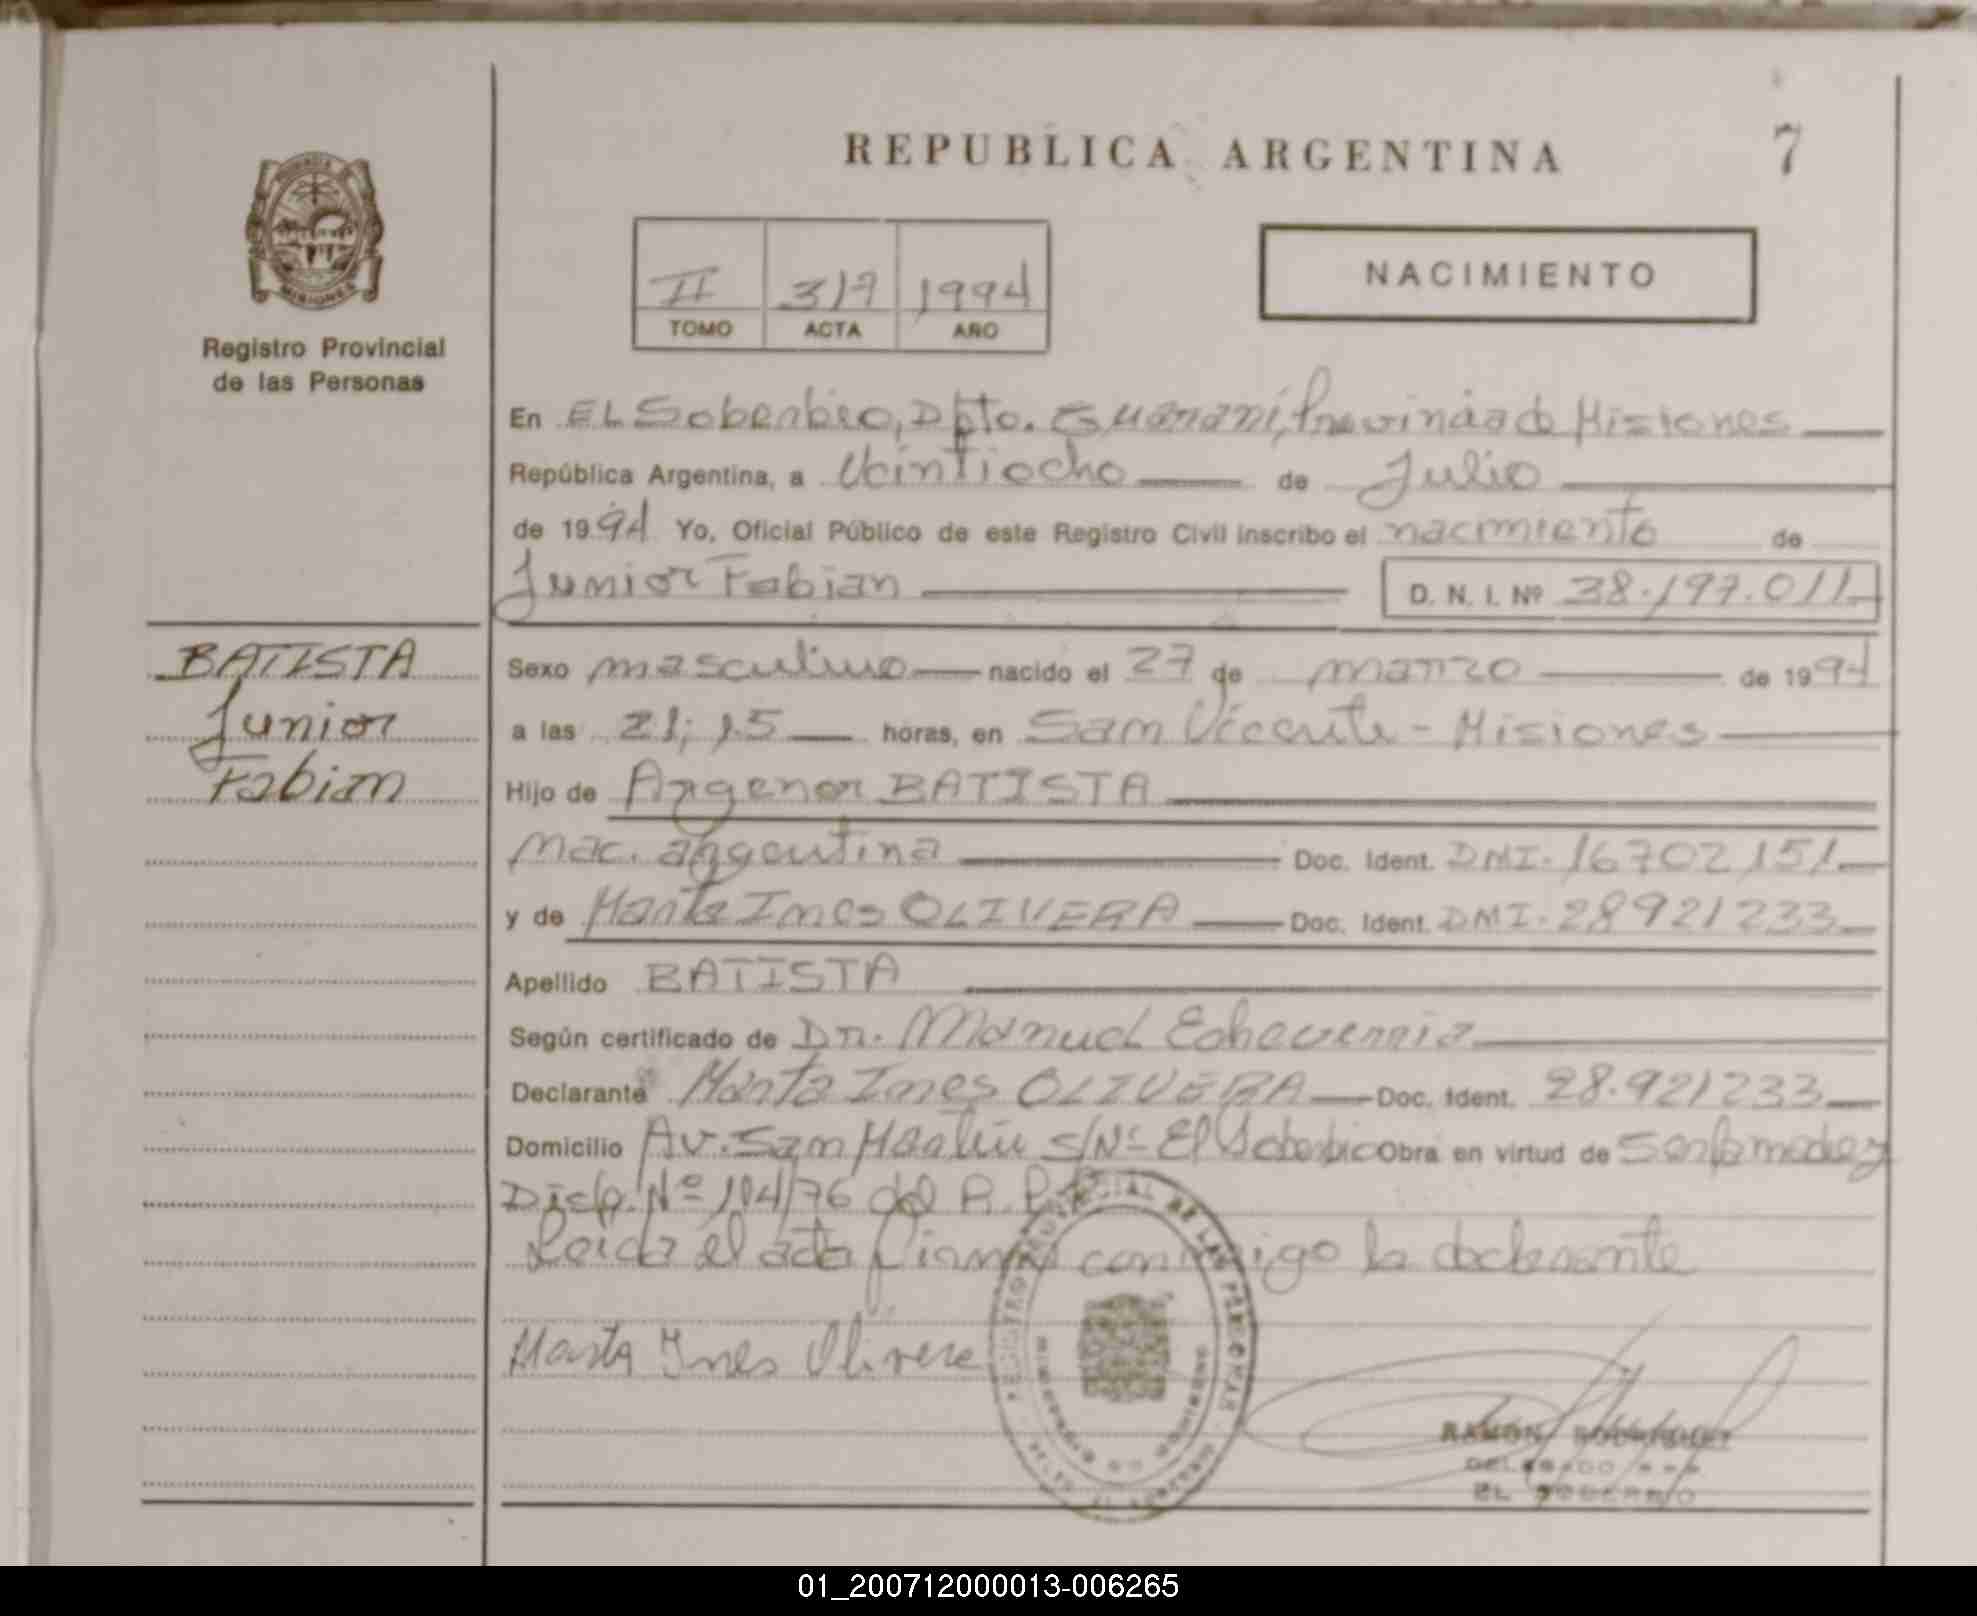 7
REPUBLICA ARGENTINA
II 317 1994
TOMO ACTA AÑO
NACIMIENTO
MISIONES
Registro Provincial
de las Personas
En EL Soberbio, Dpto. Guaraní, Provincia de Misiones
República Argentina, a Veintiocho de Julio
de 1994 Yo, Oficial Público de este Registro Civil inscribo el nacimiento de
Junior Fabian D. N. I. Nº 38.197.011
BATISTA
Junior
Fabian
Sexo masculino nacido el 27 de marzo de 1994
a las 21;15 horas, en San Vicente - Misiones
Hijo de Argenor BATISTA
nac. argentina Doc. Ident. DNI. 16702151
y de Marta Ines OLIVERA Doc. Ident. DNI. 28921233
Apellido BATISTA
Según certificado de Dr. Manuel Echeverria
Declarante Marta Ines OLIVERA Doc. Ident. 28.921233
Domicilio Av. San Martín S/Nº El Soberbio Obra en virtud de
Disp. Nº 104/76 del R. P.
Leida el acta firma conmigo la declarante
Marta Ines Olivera
REGISTRO PROVINCIAL DE LAS PERSONAS
RAMON RODRIGUEZ
DELEGADO
EL SOBERBIO
01_200712000013-006265